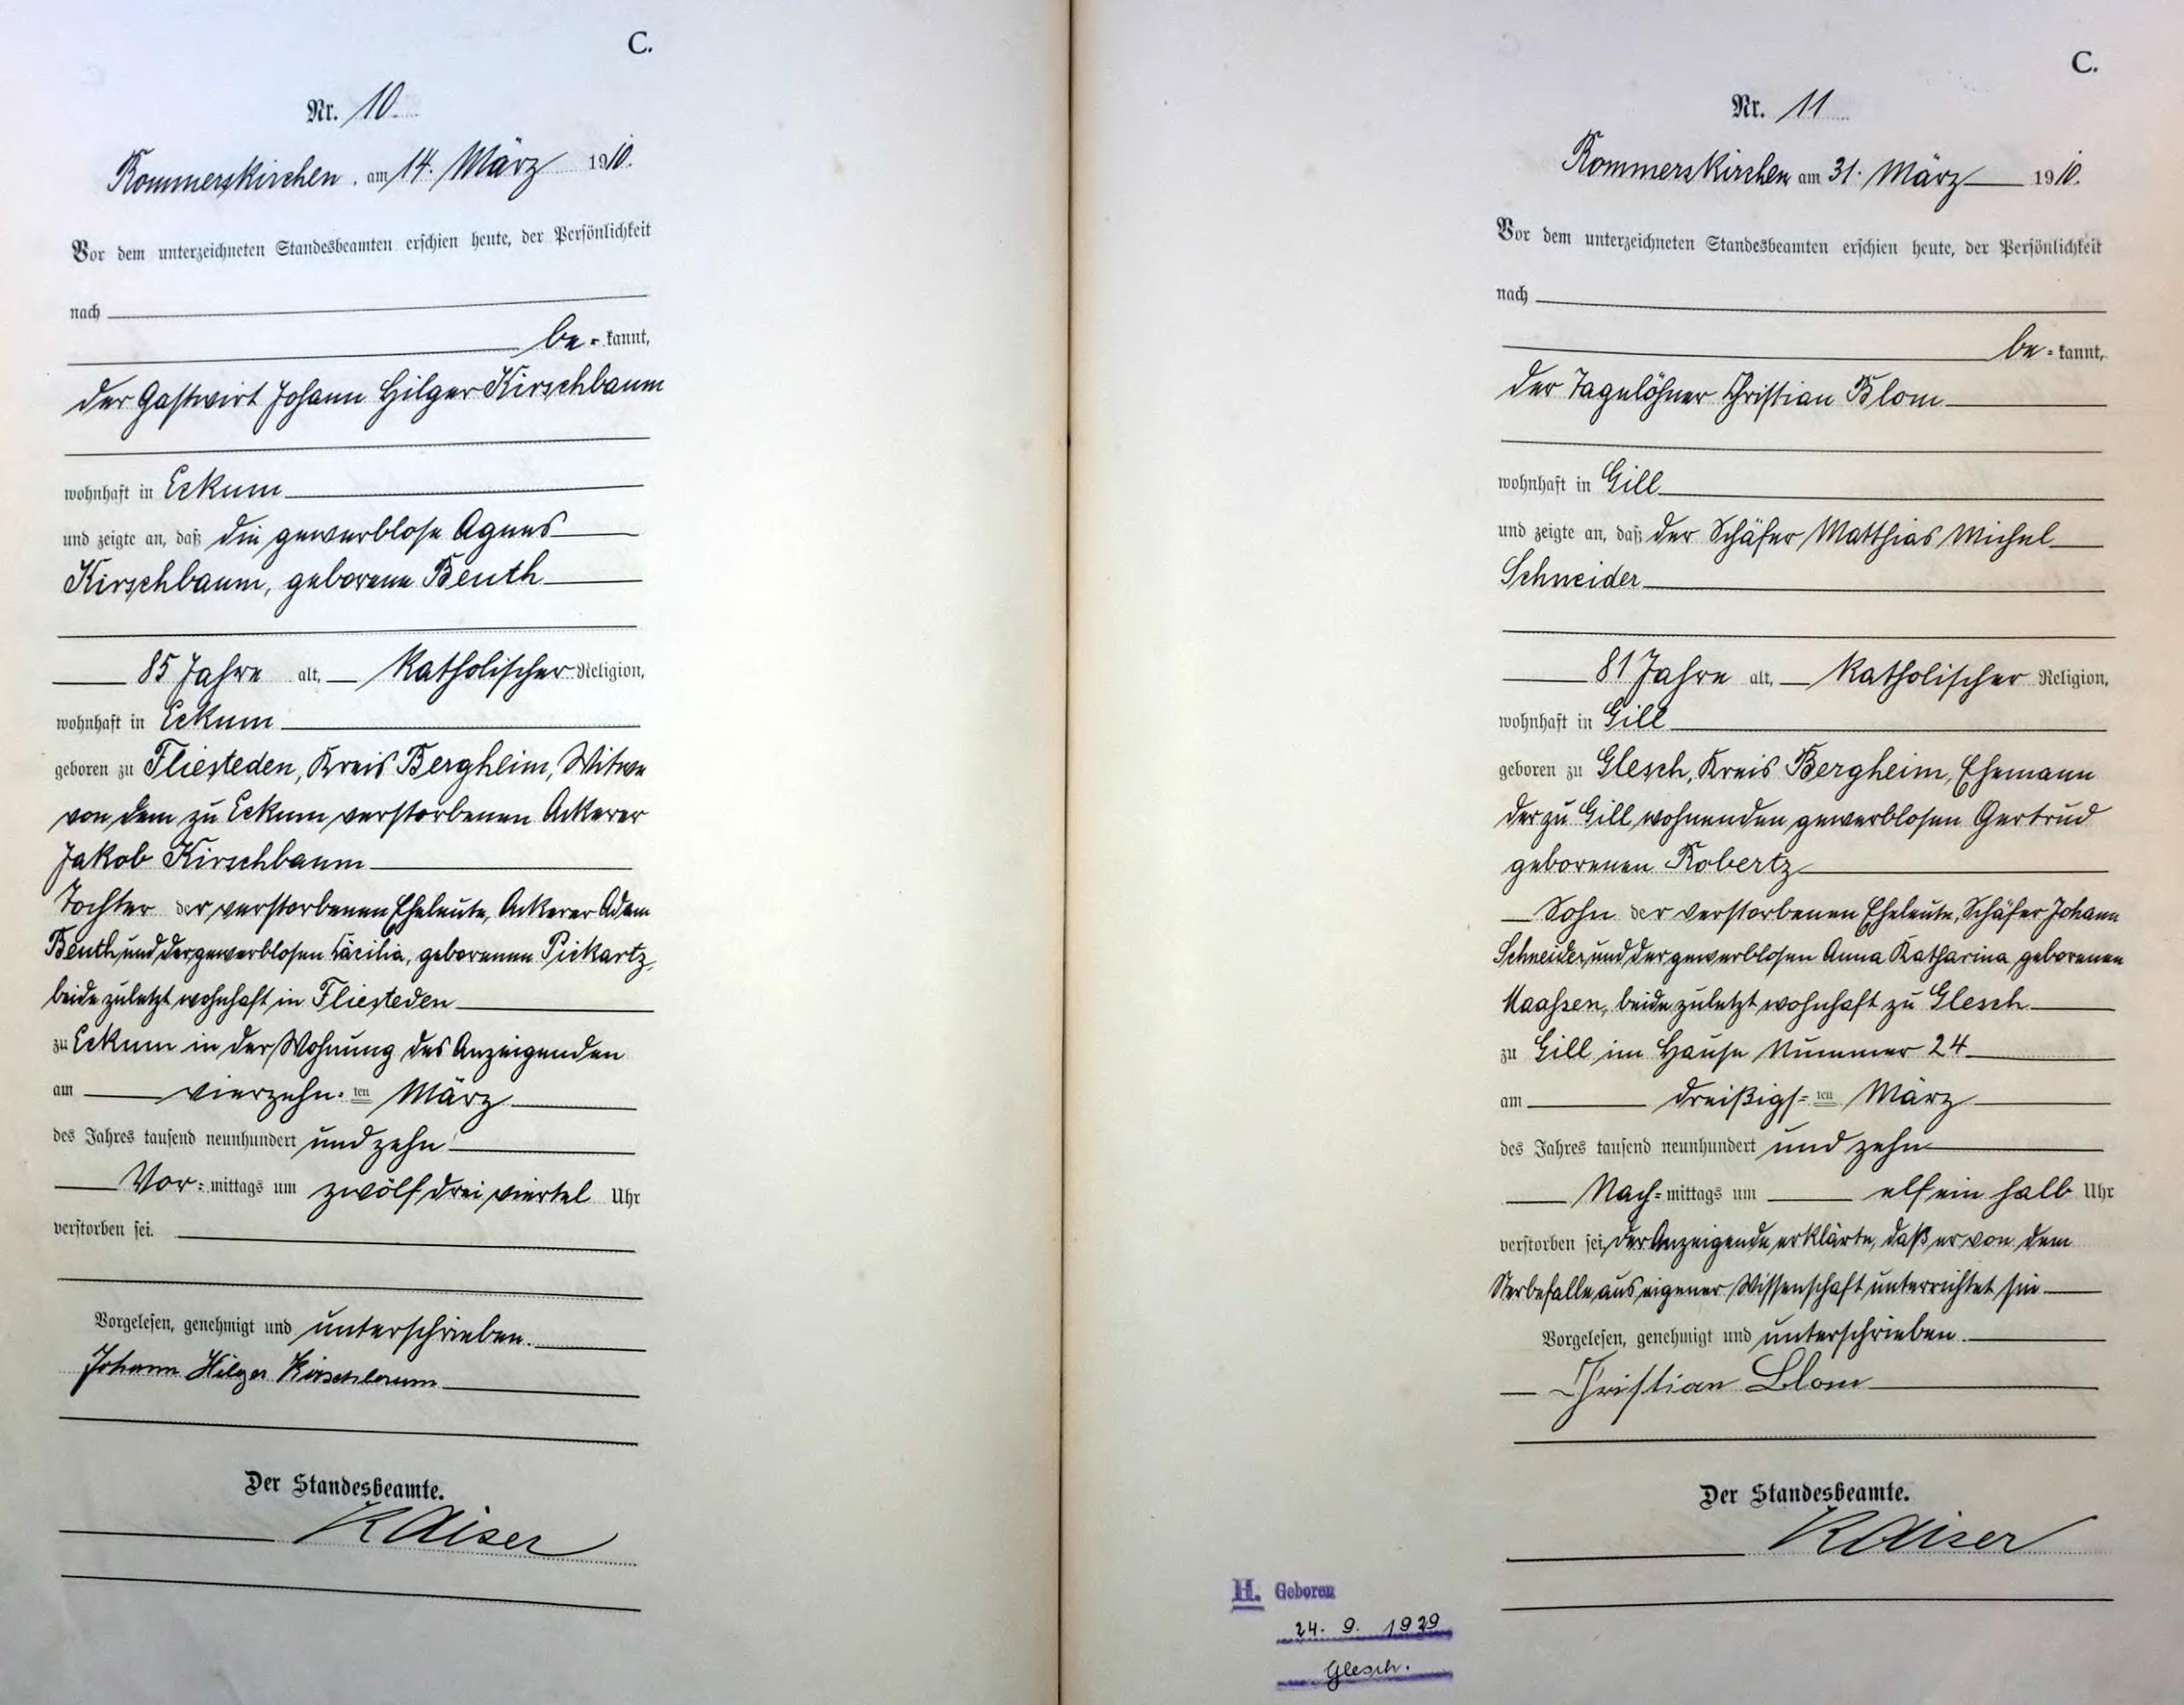 C.
Nr. 10.
Rommerskirchen, am 14. März 1910.
Vor dem unterzeichneten Standesbeamten erschien heute, der Persönlichkeit
nach
be-kannt,
der Gastwirt Johann Hilger Kirschbaum
wohnhaft in Eckum
und zeigte an, daß die gewerblose Agnes
Kirschbaum, geborene Beuth
85 Jahre alt, katholischer Religion,
wohnhaft in Eckum
geboren zu Fliesteden, Kreis Bergheim, Witwe
von dem zu Eckum verstorbenen Ackerer
Jakob Kirschbaum
Tochter der verstorbenen Eheleute, Ackerer Adam
Beuth und der gewerblosen Cäcilia, geborenen Pickartz,
beide zuletzt wohnhaft in Fliesteden
zu Eckum in der Wohnung des Anzeigenden
am vierzehn-ten März
des Jahres tausend neunhundert und zehn
Vor-mittags um zwölf drei viertel Uhr
verstorben sei.
Vorgelesen, genehmigt und unterschrieben.
Johann Hilger Kirschbaum
Der Standesbeamte.
Kaiser
C.
Nr. 11
Rommerskirchen am 31. März 1910.
Vor dem unterzeichneten Standesbeamten erschien heute, der Persönlichkeit
nach
be-kannt,
der Tagelöhner Christian Blom
wohnhaft in Gill
und zeigte an, daß der Schäfer Matthias Michel
Schneider
81 Jahre alt, katholischer Religion,
wohnhaft in Gill
geboren zu Glesch, Kreis Bergheim, Ehemann
der zu Gill wohnenden gewerblosen Gertrud
geborenen Robertz
Sohn der verstorbenen Eheleute, Schäfer Johann
Schneider und der gewerblosen Anna Katharina geborenen
Maahsen, beide zuletzt wohnhaft zu Glesch
zu Gill im Hause Nummer 24
am dreißigs-ten März
des Jahres tausend neunhundert und zehn
Nach-mittags um elf ein halb Uhr
verstorben sei, der Anzeigende erklärte, daß er von dem
Sterbefalle aus eigener Wissenschaft unterrichtet sei
Vorgelesen, genehmigt und unterschrieben.
Christian Blom
Der Standesbeamte.
Kaiser
H. Geboren
24. 9. 1929
Glesch.